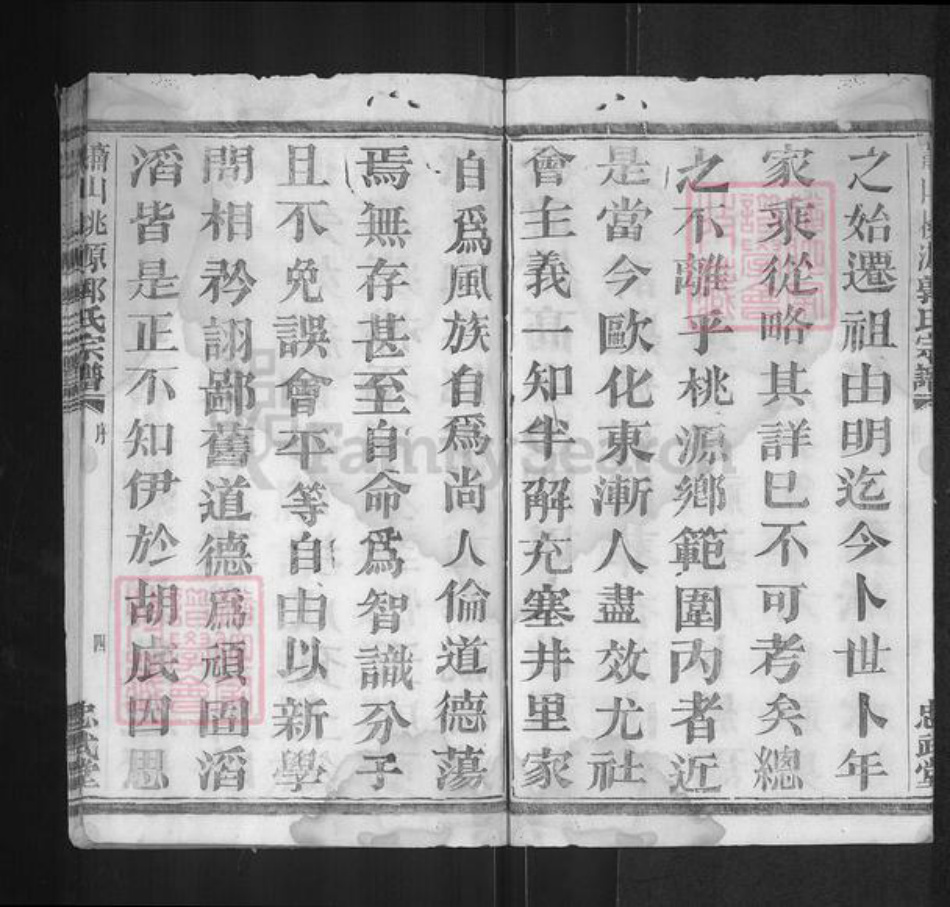 之始遷祖由明迄今卜世卜年
家乘從略其詳已不可考矣總
之不離乎桃源鄉範圍內者近
是當今歐化東漸人盡效尤社
會主義一知半解充塞井里家
自爲風族自爲尚人倫道德蕩
焉無存甚至自命爲智識分子
且不免誤會平等自由以新學
問相矜詡鄙舊道德爲頑固滔
滔皆是正不知伊於胡底因思
蕭山桃源郭氏宗譜
序
四
忠武堂
FamilySearch